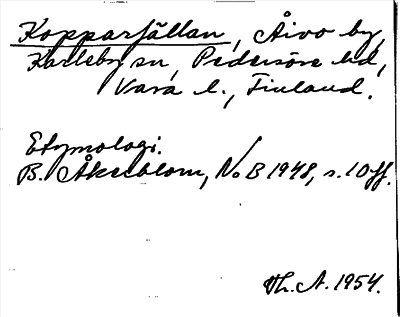 Kopparfjällan, Åivo by,
Karleby sn, Pedersöre hd,
Vasa l., Finland.
Etymologi.
B. Åkerblom, NoB 1948, s. 10 ff.
Th. A. 1954.